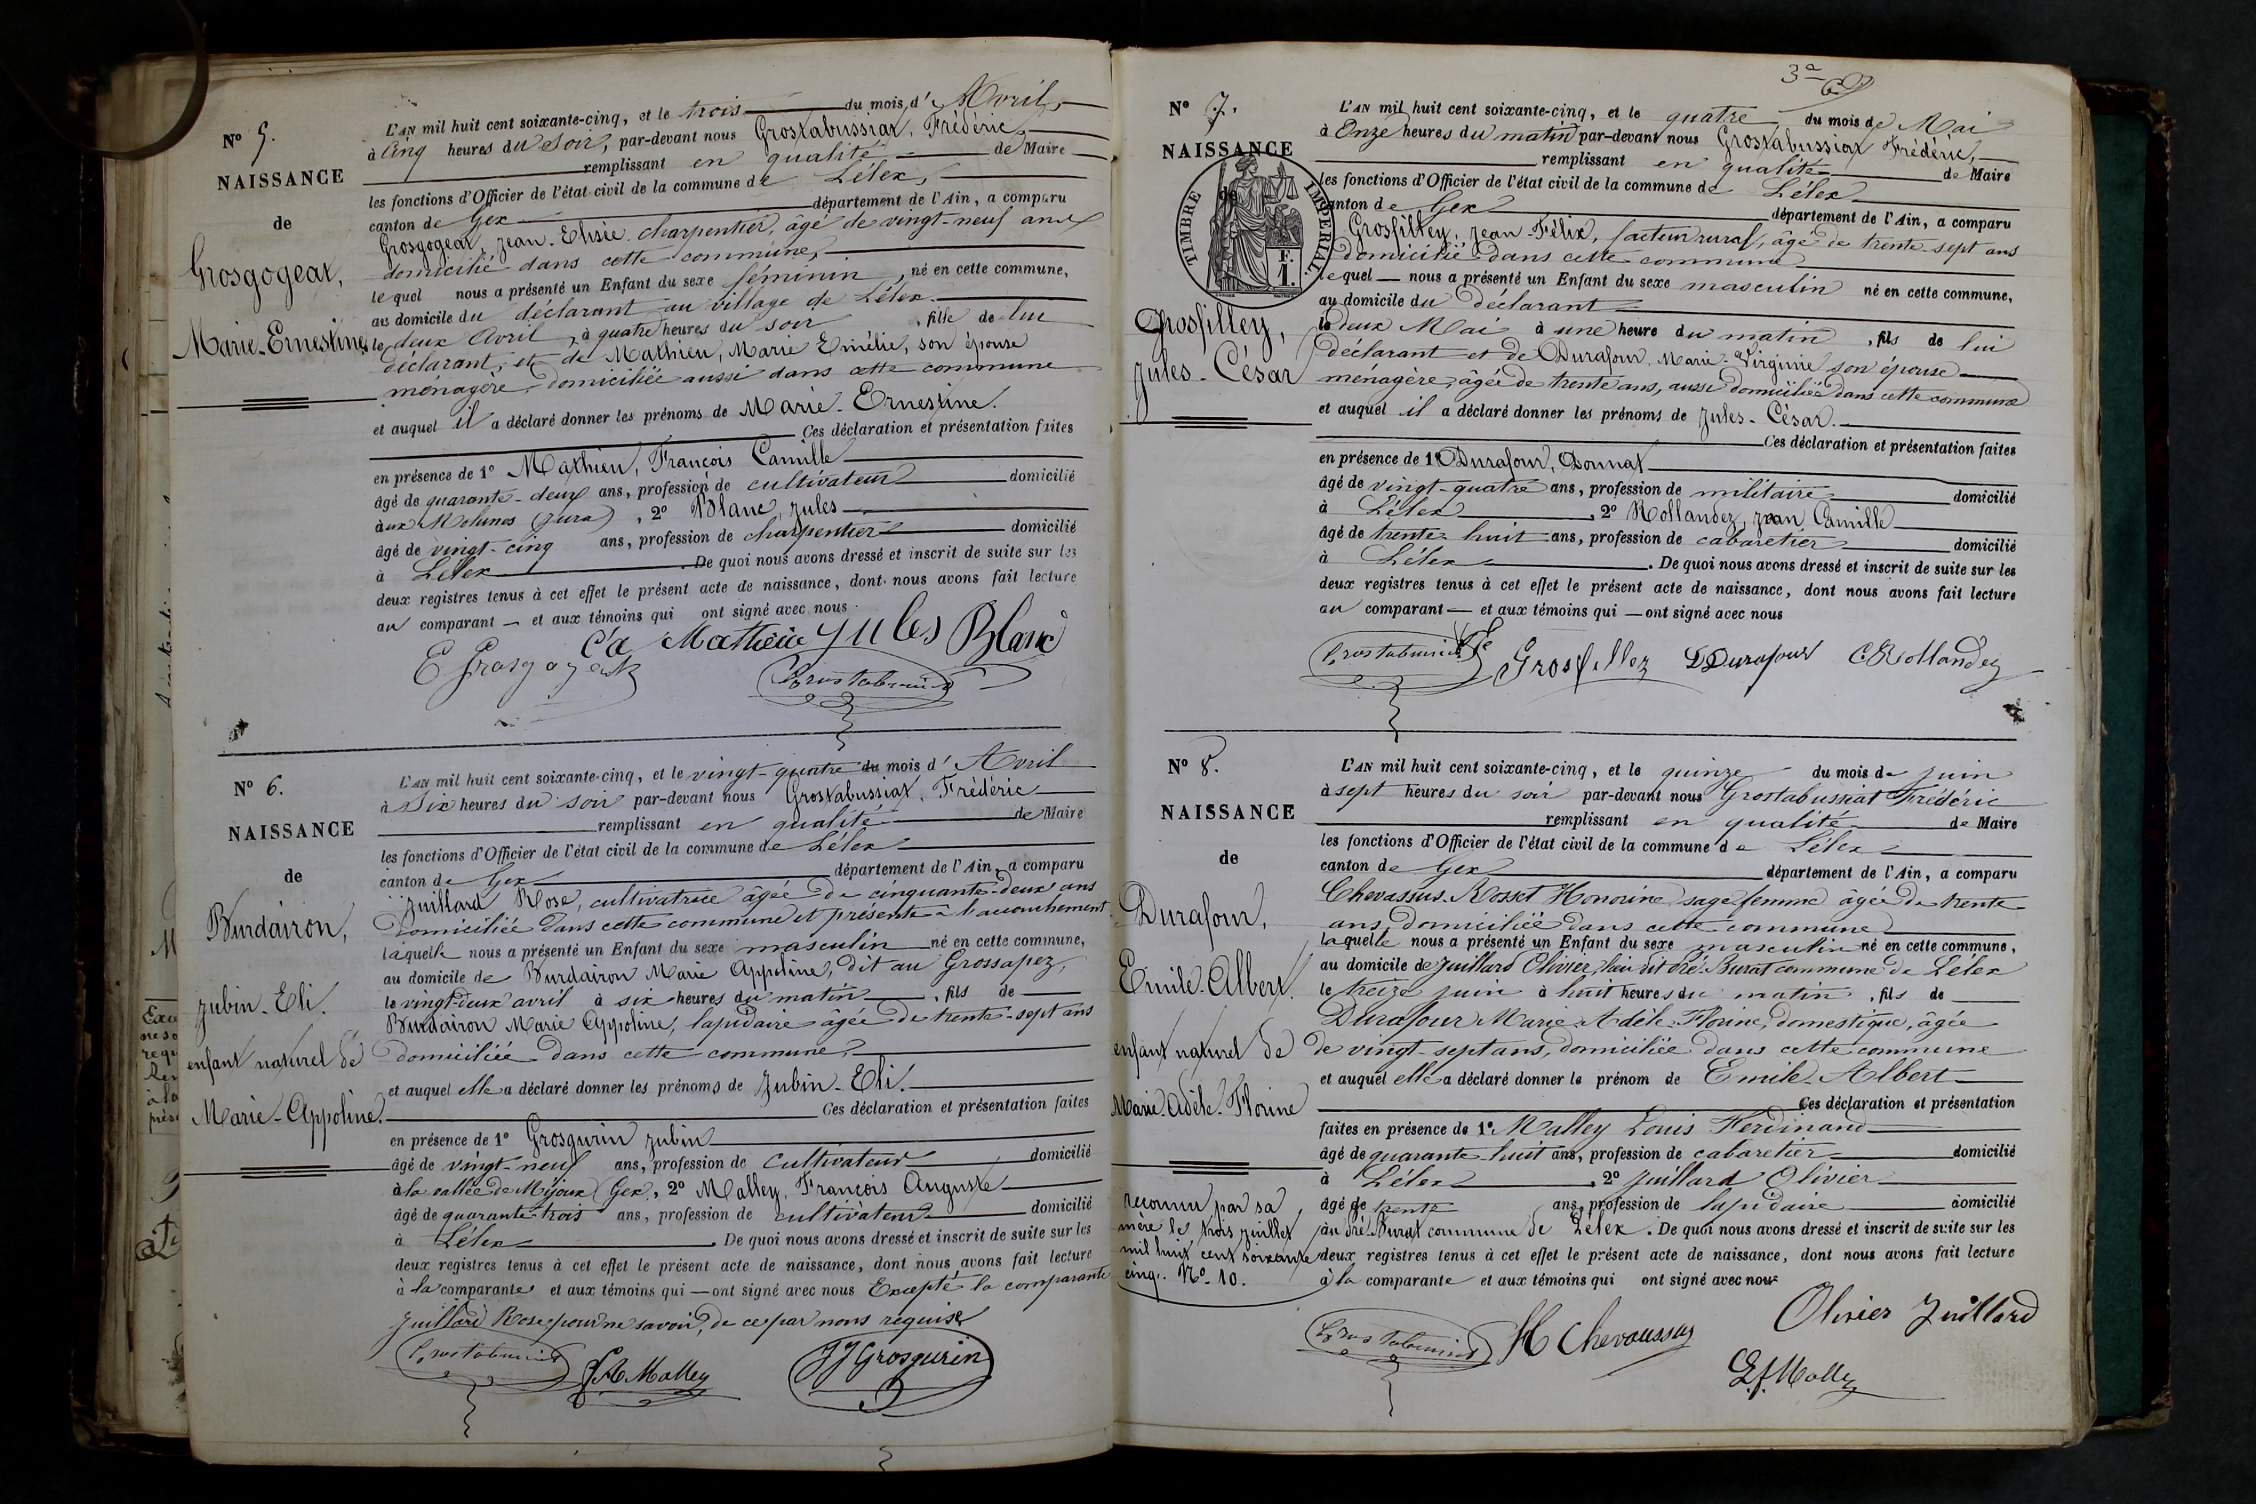 N° 5.
NAISSANCE
de
Grosgogeat,
Marie-Ernestine
L'AN mil huit cent soixante-cinq, et le trois du mois d'Avril
à Cinq heures du soir, par-devant nous Grostabussiat, Frédéric,
remplissant en qualité de Maire
les fonctions d'Officier de l'état civil de la commune de Lélex,
canton de Gex département de l'Ain, a comparu
Grosgogeat, Jean-Elisée charpentier, âgé de vingt-neuf ans
domicilié dans cette commune,
lequel nous a présenté un Enfant du sexe féminin, né en cette commune,
au domicile du déclarant au village de Lélex.
le deux Avril, à quatre heures du soir, fille de lui
déclarant, et de Mathieu, Marie Emélie, son épouse
ménagère, domiciliée aussi dans cette commune
et auquel il a déclaré donner les prénoms de Marie-Ernestine.
Ces déclaration et présentation faites
en présence de 1° Mathieu, François Camille
âgé de quarante-deux ans, profession de cultivateur domicilié
aux Molunes (Jura), 2° Blanc, Jules
âgé de vingt-cinq ans, profession de charpentier domicilié
à Lélex. De quoi nous avons dressé et inscrit de suite sur les
deux registres tenus à cet effet le présent acte de naissance, dont nous avons fait lecture
au comparant et aux témoins qui ont signé avec nous.
Mathieu Jules Blanc
E Grosgogeat
Grostabussiat
N° 6.
NAISSANCE
de
Burdairon,
Jubin-Eli.
enfant naturel de
Marie-Appoline.
L'AN mil huit cent soixante-cinq, et le vingt-quatre du mois d'Avril
à Six heures du soir par-devant nous Grostabussiat, Frédéric
remplissant en qualité de Maire
les fonctions d'Officier de l'état civil de la commune de Lélex
canton de Gex département de l'Ain, a comparu
Juillard Rose, cultivatrice âgée de cinquante-deux ans
Domiciliée dans cette commune et présente à l'accouchement
laquelle nous a présenté un Enfant du sexe masculin né en cette commune,
au domicile de Burdairon Marie Appoline, dit au Grossapez,
le vingt-deux avril à six heures du matin, fils de
Burdairon Marie Appoline, lapidaire âgée de trente-sept ans
domiciliée dans cette commune,
et auquel elle a déclaré donner les prénoms de Jubin-Eli.
Ces déclaration et présentation faites
en présence de 1° Grosgurin Jubin
âgé de vingt-neuf ans, profession de cultivateur domicilié
à la vallée de Mijoux (Gex, 2° Malley, François Auguste
âgé de quarante-trois ans, profession de cultivateur domicilié
à Lélex. De quoi nous avons dressé et inscrit de suite sur les
deux registres tenus à cet effet le présent acte de naissance, dont nous avons fait lecture
à la comparante et aux témoins qui ont signé avec nous Excepté la comparante
Juillard Rose pour ne savoir, de ce par nous requise
Grostabussiat FA Malley JJ Grosgurin
3e
N° 7.
NAISSANCE
de
TIMBRE IMPERIAL
F.
1.
Grosfilley,
Jules-César
L'AN mil huit cent soixante-cinq, et le quatre du mois de Mai
à Onze heures du matin par-devant nous Grostabussiat Frédéric,
remplissant en qualité de Maire
les fonctions d'Officier de l'état civil de la commune de Lélex
canton de Gex département de l'Ain, a comparu
Grosfilley, Jean-Félix, facteur rural, âgé de trente-sept ans
domicilié dans cette commune
lequel nous a présenté un Enfant du sexe masculin né en cette commune,
au domicile du déclarant
le deux Mai à une heure du matin, fils de lui
déclarant et de Durafour Marie-Virginie son épouse
ménagère, âgée de trente ans, aussi domiciliée dans cette commune
et auquel il a déclaré donner les prénoms de Jules-César.
Ces déclaration et présentation faites
en présence de 1° Durafour, Donnat
âgé de vingt-quatre ans, profession de militaire domicilié
à Lélex, 2° Rollandez, Jean Camille
âgé de trente-huit ans, profession de cabaretier domicilié
à Lélex. De quoi nous avons dressé et inscrit de suite sur les
deux registres tenus à cet effet le présent acte de naissance, dont nous avons fait lecture
au comparant et aux témoins qui ont signé avec nous
Grostabussiat Grosfillez D Durafour C. Rollandez
N° 8.
NAISSANCE
de
Durafour,
Emile-Albert.
enfant naturel de
Marie-Adèle-Florine
reconnu par sa
mère le trois juillet
mil huit cent soixante
cinq. No. 10.
L'AN mil huit cent soixante-cinq, et le quinze du mois de juin
à sept heures du soir par-devant nous Grostabussiat Frédéric
remplissant en qualité de Maire
les fonctions d'Officier de l'état civil de la commune de Lélex
canton de Gex département de l'Ain, a comparu
Chevassus-Rosset Honorine sage femme âgée de trente
ans, domiciliée dans cette commune
laquelle nous a présenté un Enfant du sexe masculin né en cette commune,
au domicile de Juillard Olivier, lieu dit Pré-Burat commune de Lélex
le treize juin à huit heures du matin, fils de
Durafour Marie-Adèle-Florine, domestique, âgée
de vingt-sept ans, domiciliée dans cette commune
et auquel elle a déclaré donner le prénom de Emile-Albert
Ces déclaration et présentation
faites en présence de 1° Malley Louis Ferdinand
âgé de quarante-huit ans, profession de cabaretier domicilié
à Lélex, 2° Juillard Olivier
âgé de trente ans, profession de lapidaire domicilié
au Pré-Burat commune de Lélex. De quoi nous avons dressé et inscrit de suite sur les
deux registres tenus à cet effet le présent acte de naissance, dont nous avons fait lecture
à la comparante et aux témoins qui ont signé avec nous
Grostabussiat H Chevassus Olivier Juillard
L.f. Malley